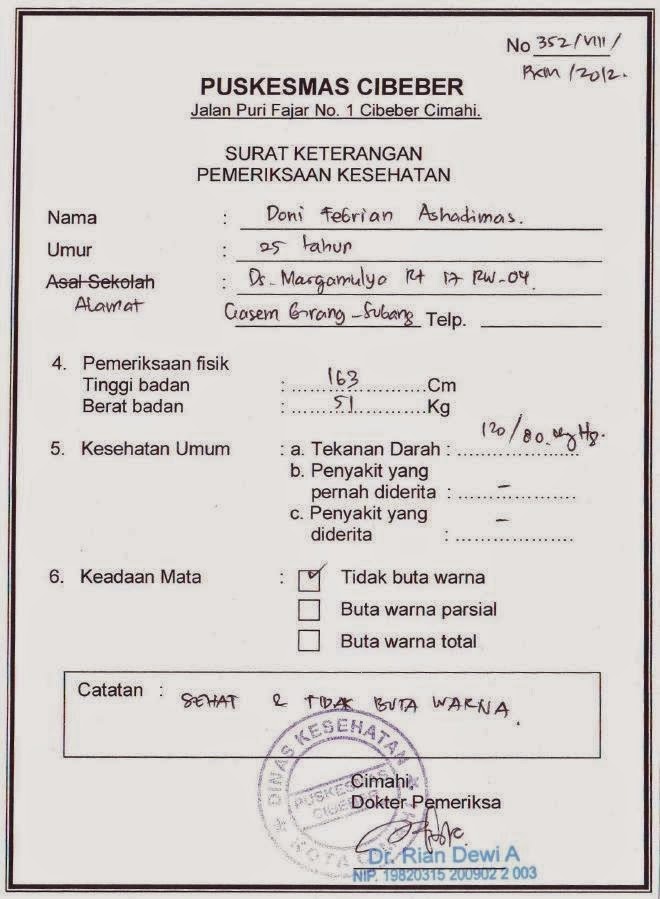 No 352/VIII/
PKM/2012.
PUSKESMAS CIBEBER
Jalan Puri Fajar No. 1 Cibeber Cimahi.
SURAT KETERANGAN
PEMERIKSAAN KESEHATAN
Nama : Doni Febrian Ashadimas.
Umur : 25 tahun
Asal Sekolah : Ds. Margamulyo Rt 17 RW-04.
Alamat Girang - Subang Telp.
4. Pemeriksaan fisik
Tinggi badan : 163 Cm
Berat badan : 51 Kg
5. Kesehatan Umum : a. Tekanan Darah : 120/80
b. Penyakit yang
pernah diderita : -
c. Penyakit yang
diderita : -
6. Keadaan Mata : ✓ Tidak buta warna
Buta warna parsial
Buta warna total
Catatan : SEHAT & TIDAK BUTA WARNA.
DINAS KESEHATAN
PUSKESMAS
CIBEBER
KOTA
Cimahi,
Dokter Pemeriksa
Dr. Rian Dewi A
NIP. 19820315 200902 2 003